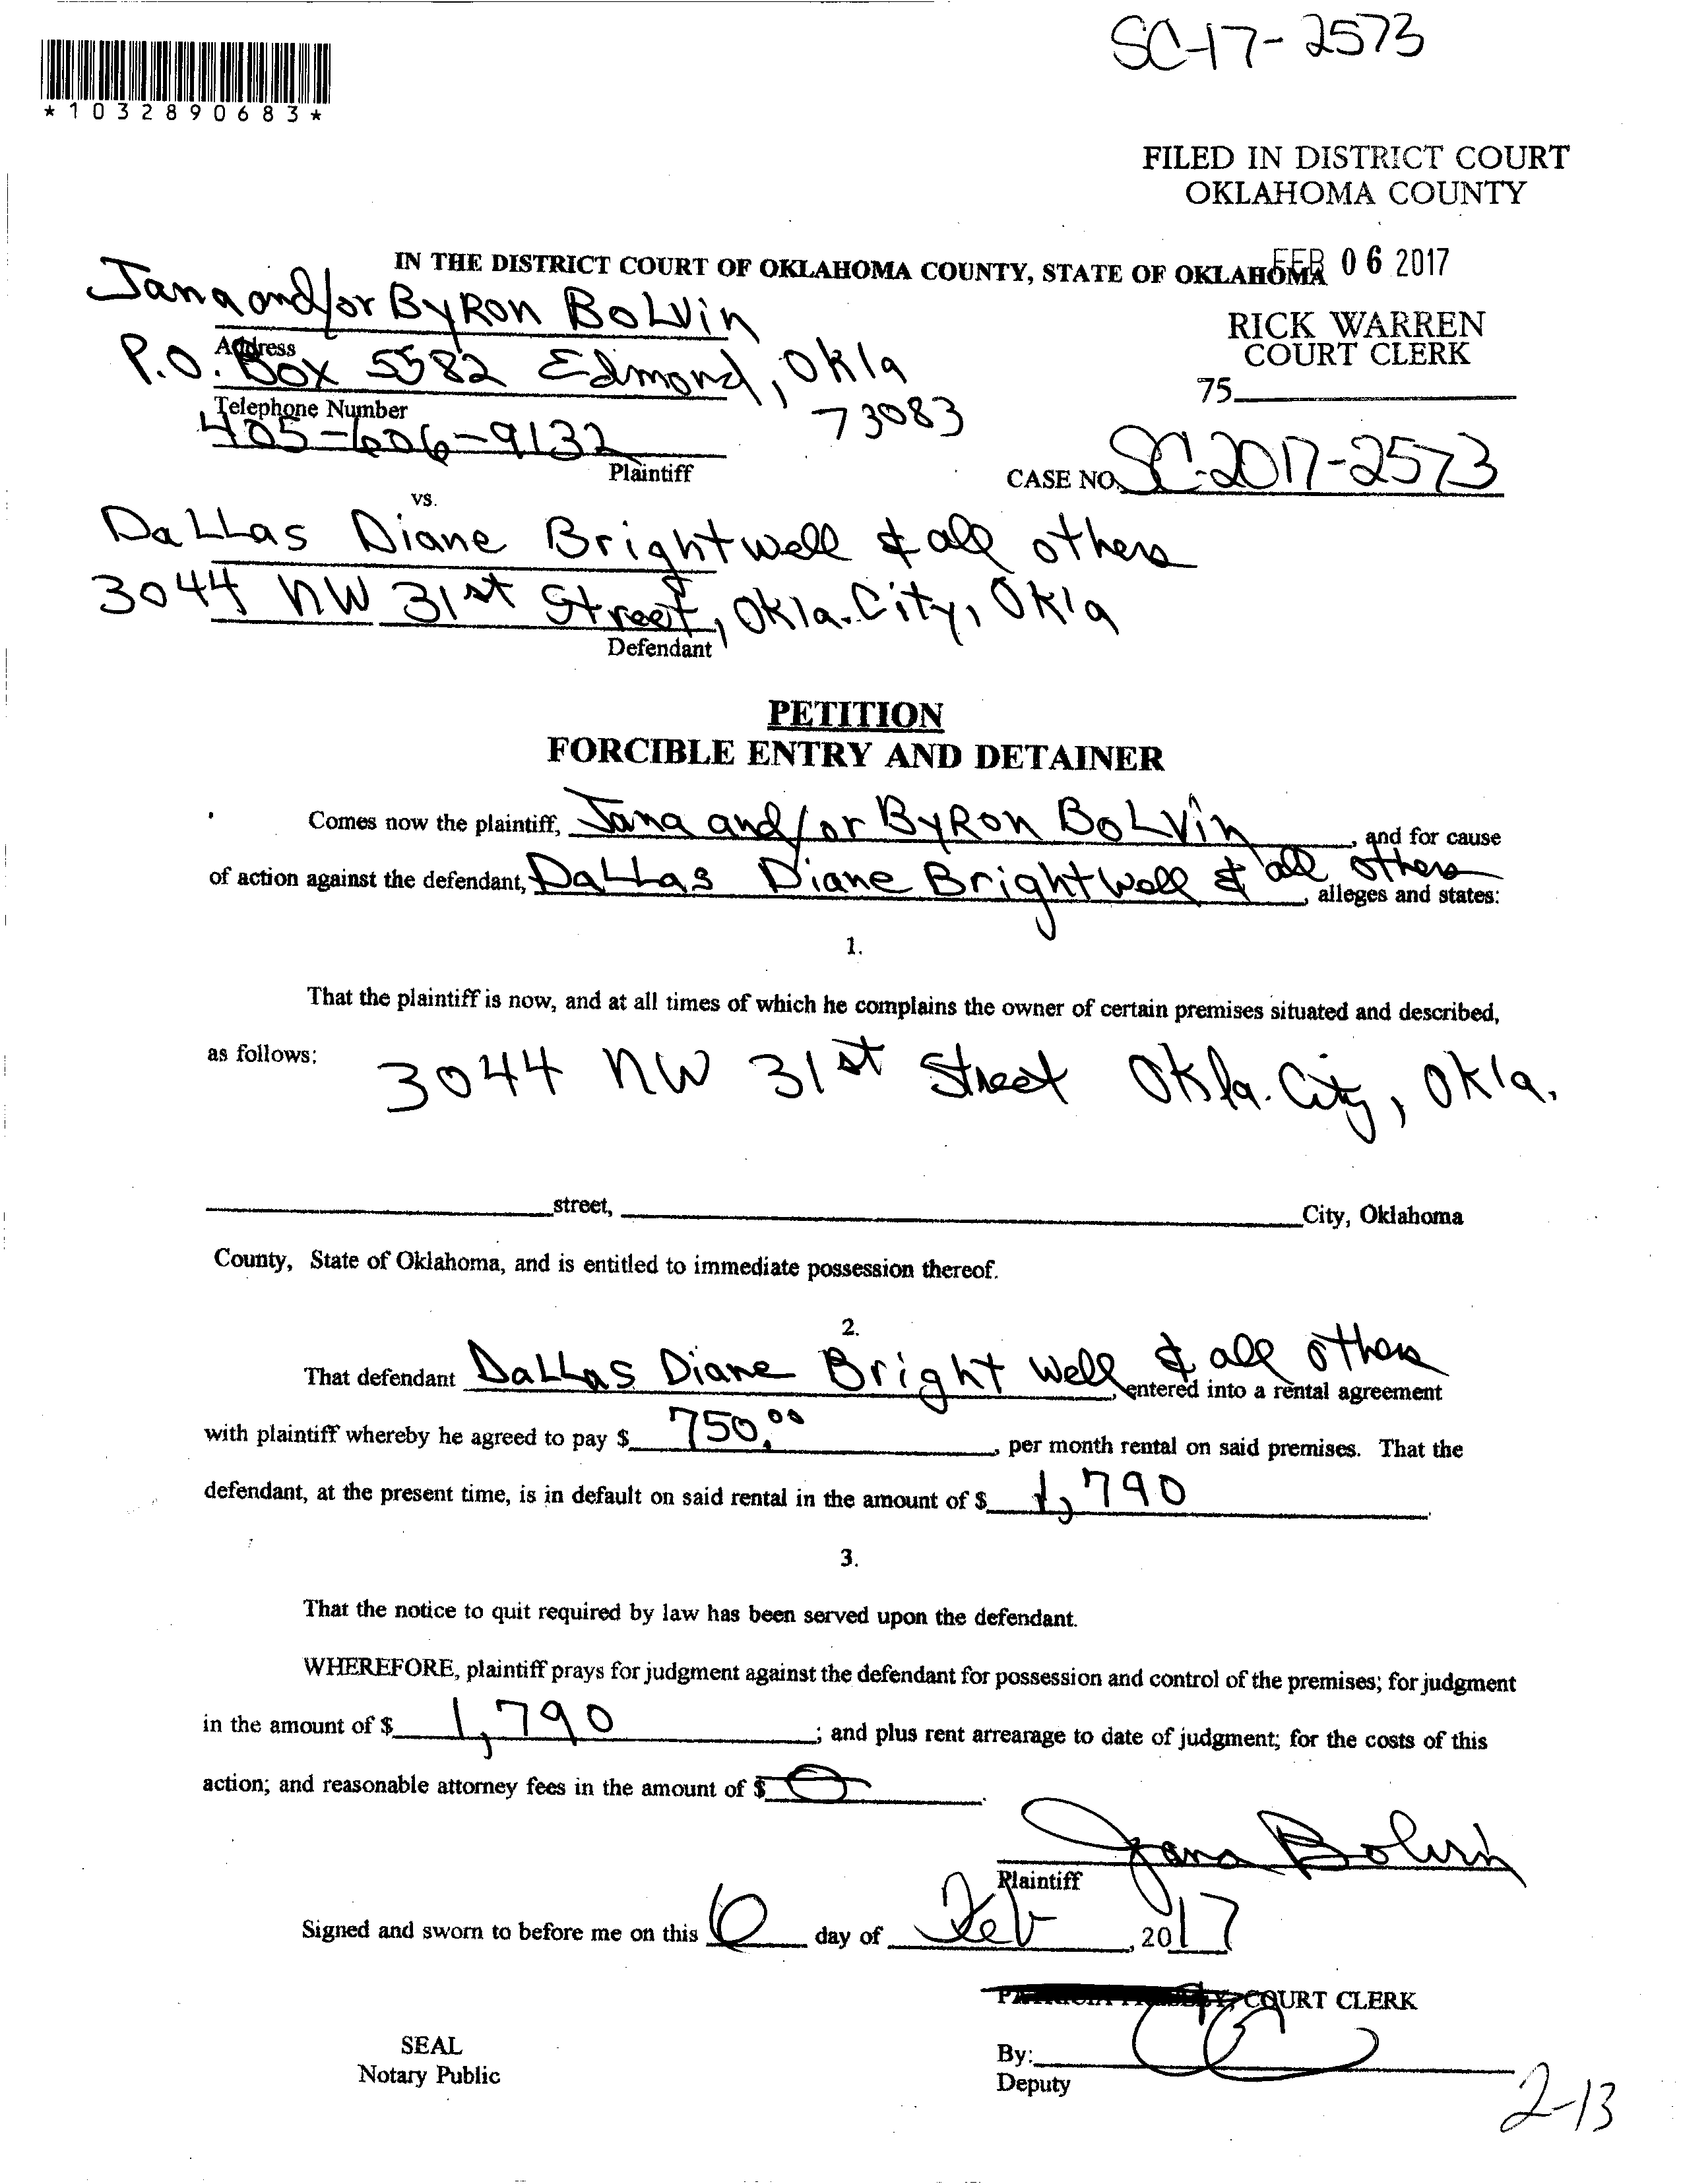 SC-17-2573
*1032890683*
FILED IN DISTRICT COURT
OKLAHOMA COUNTY
IN THE DISTRICT COURT OF OKLAHOMA COUNTY, STATE OF OKLAHOMA
FEB 06 2017
Jana and/or Byron Bolvin
RICK WARREN
COURT CLERK
Address
P.O. Box 5582 Edmond, Okla
73083
75
Telephone Number
405-606-9132
Plaintiff
CASE NO. SC-2017-2573
vs.
Dallas Diane Brightwell & all others
3044 NW 31st Street, Okla. City, Okla
Defendant
PETITION
FORCIBLE ENTRY AND DETAINER
Comes now the plaintiff, Jana and/or Byron Bolvin, and for cause
of action against the defendant, Dallas Diane Brightwell & all others, alleges and states:
1.
That the plaintiff is now, and at all times of which he complains the owner of certain premises situated and described,
as follows: 3044 NW 31st Street Okla. City, Okla.
street, City, Oklahoma
County, State of Oklahoma, and is entitled to immediate possession thereof.
2.
That defendant Dallas Diane Bright well & all others, entered into a rental agreement
with plaintiff whereby he agreed to pay $ 750.00, per month rental on said premises. That the
defendant, at the present time, is in default on said rental in the amount of $ 1,790.
3.
That the notice to quit required by law has been served upon the defendant.
WHEREFORE, plaintiff prays for judgment against the defendant for possession and control of the premises; for judgment
in the amount of $ 1,790; and plus rent arrearage to date of judgment; for the costs of this
action; and reasonable attorney fees in the amount of $ 0.
Jana Bolvin
Plaintiff
Signed and sworn to before me on this 6 day of Feb, 2017
COURT CLERK
SEAL
Notary Public
By:
Deputy
2-13